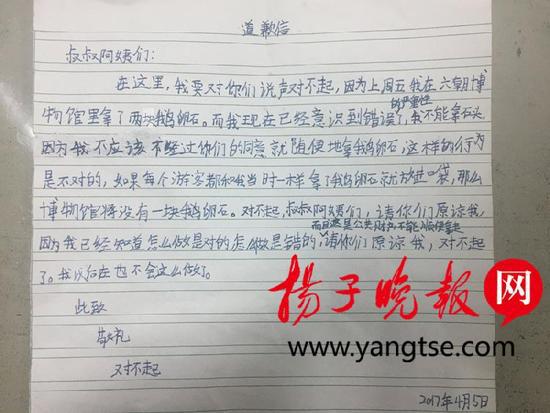 道歉信
叔叔阿姨们：
在这里，我要对你们说声对不起，因为上周五我在六朝博
物馆里拿了两块鹅卵石。而我现在已经意识到错误了，我不能拿石头
的严重性
因为我不应该不经过你们的同意就随便地拿鹅卵石，这样的行为
是不对的，如果每个游客都和我当时一样拿了鹅卵石就放进口袋，那么
博物馆将没有一块鹅卵石。对不起，叔叔阿姨们，请你们原谅我，
而且这是公共财物，不能随便拿走
因为我已经知道怎么做是对的怎么做是错的，请你们原谅我，对不起
了。我以后在也不会这么做了。
此致
敬礼
对不起
2017年4月5日
扬子晚报网
www.yangtse.com